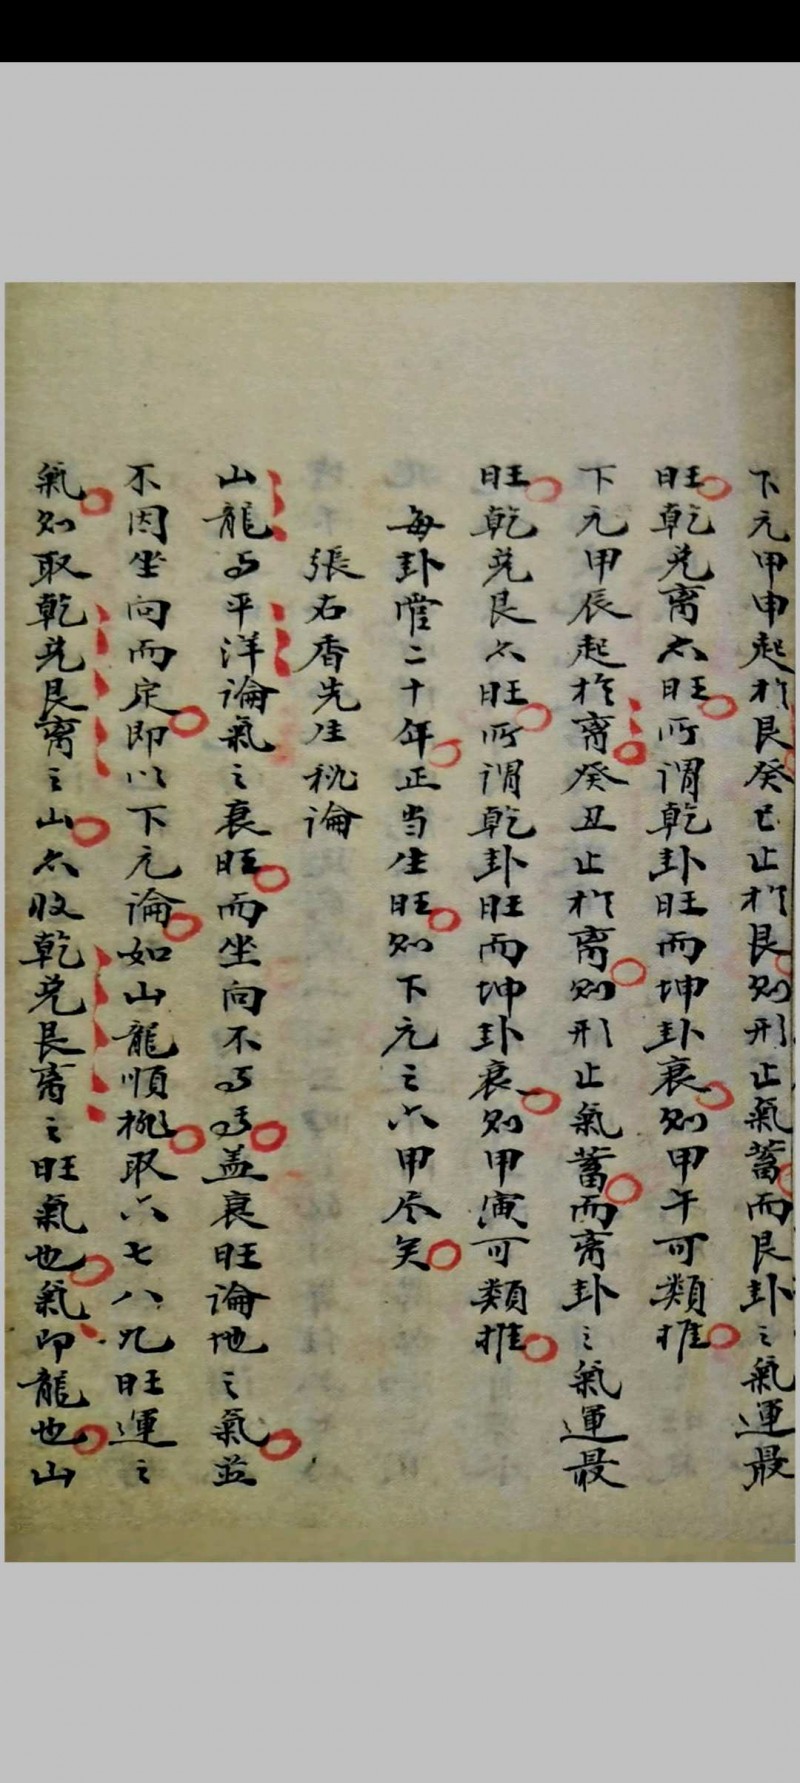 下元甲申起於艮癸巳止於艮则形止氣蓄而艮卦之氣運最
旺乾兊离亦旺所谓乾卦旺而坤卦衰则甲午可類推
下元甲辰起於离癸丑止於离则形止氣蓄而离卦之氣運最
旺乾兊艮亦旺所谓乾卦旺而坤卦衰则甲寅可類推
每卦管二十年正当生旺则下元之六甲尽矣
張右香先生秘論
山龍与平洋論氣之衰旺而坐向不与焉盖衰旺論地之氣並
不因坐向而定即以下元論如山龍順挑取六七八九旺運之
氣则取乾兊艮离之山亦收乾兊艮离之旺氣也氣即龍也山